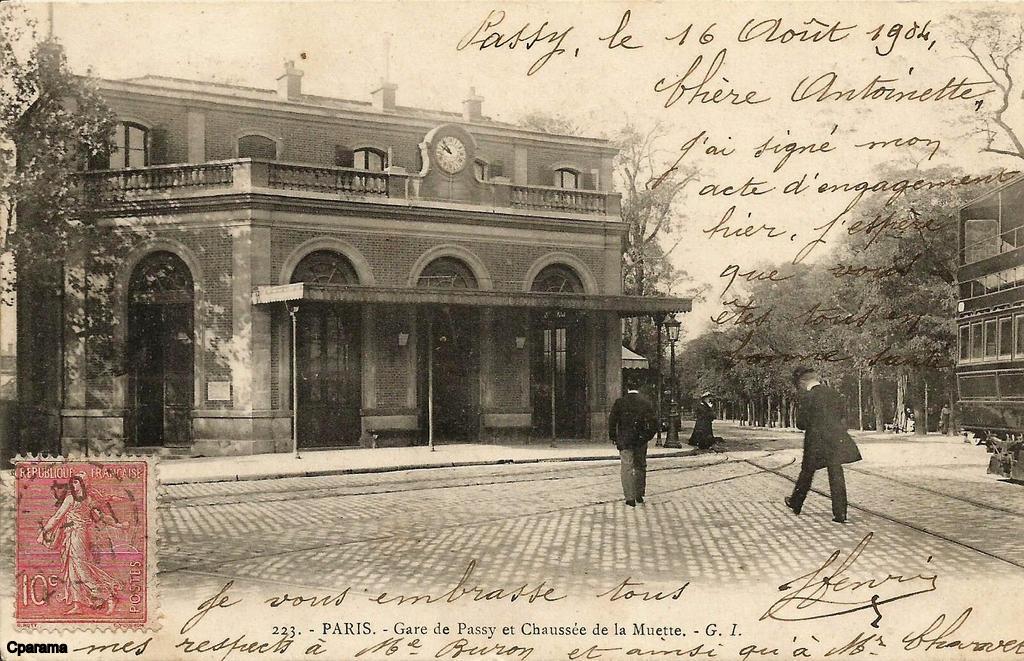 Passy, le 16 Août 1904,
Chère Antoinette,
j'ai signé mon
acte d'engagement
hier, j'espère
que vous
êtes tous en
bonne santé
REPUBLIQUE FRANÇAISE
10c
POSTES
Je vous embrasse tous
Henri
223. - PARIS. - Gare de Passy et Chaussée de la Muette. - G. I.
mes respects à Me Buron et ainsi qu'à Mr Charvet
Cparama